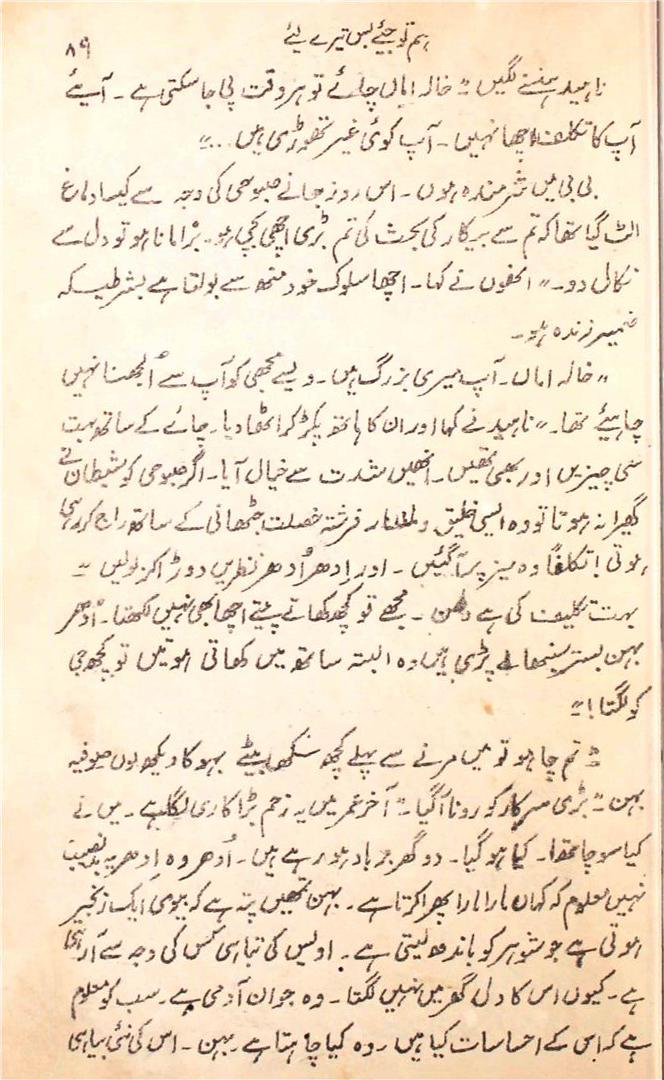 ہم تو جیئے بس تیرے لیے
۸۹
ناہید ہنسنے لگیں "خالہ اماں چائے تو ہر وقت پی جا سکتی ہے۔ آیئے
آپ کا تکلف اچھا نہیں۔ آپ کوئی غیر تھوڑی ہیں..."
بی بی میں شرمندہ ہوں۔ اس روز جانے صبوحی کی وجہ سے کیسا دماغ
الٹ گیا تھا کہ تم سے بیکار کی بحث کی تم بڑی اچھی بچی ہو۔ بُرا مانا ہو تو دل سے
نکال دو۔" انھوں نے کہا۔ اچھا سلوک خود منھ سے بولتا ہے بشرطیکہ
ضمیر زندہ ہو۔
"خالہ اماں۔ آپ میری بزرگ ہیں۔ ویسے مجھی کو آپ سے اُلجھنا نہیں
چاہیئے تھا۔" ناہید نے کہا اور ان کا ہاتھ پکڑ کر اٹھا دیا۔ چائے کے ساتھ بہت
سی چیزیں اور بھی تھیں۔ انھیں شدت سے خیال آیا۔ اگر صبوحی کو شیطان نے
گھیرا نہ ہوتا تو وہ ایسی خلیق و ملنسار فرشتہ خصلت جٹھانی کے ساتھ راج کر رہی
ہوتی! تکلفاً وہ میز پر آ گئیں۔ اور اِدھر اُدھر نظریں دوڑا کر بولیں "
بہت تکلیف کی ہے دلھن۔ مجھے تو کچھ کھاتے پیتے اچھا بھی نہیں لگتا۔ اُدھر
بہن بستر سنبھالے پڑی ہیں وہ البتہ ساتھ میں کھاتی ہوتیں تو کچھ جی
کو لگتا!"
"تم چاہو تو میں مرنے سے پہلے کچھ سکھ بیٹے بہو کا دیکھ لوں صوفیہ
بہن" بڑی سرکار کو رونا آ گیا" آخر عمر میں یہ زخم بڑا کاری لگا ہے۔ میں نے
کیا سوچا تھا۔ کیا ہو گیا۔ دو گھر برباد ہو رہے ہیں۔ اُدھر وہ اِدھر یہ بدنصیب
نہیں معلوم کہ کہاں مارا مارا پھرا کرتا ہے۔ بہن تمھیں پتہ ہے کہ بیوی ایک زنجیر
ہوتی ہے جو شوہر کو باندھ لیتی ہے۔ اویس کی تباہی کس کی وجہ سے آ رہی
ہے۔ کیوں اس کا دل گھر میں نہیں لگتا۔ وہ جوان آدمی ہے۔ سب کو معلوم
ہے کہ اس کے احساسات کیا ہیں۔ وہ کیا چاہتا ہے۔ بہن۔ اس کی نئی بیاہی